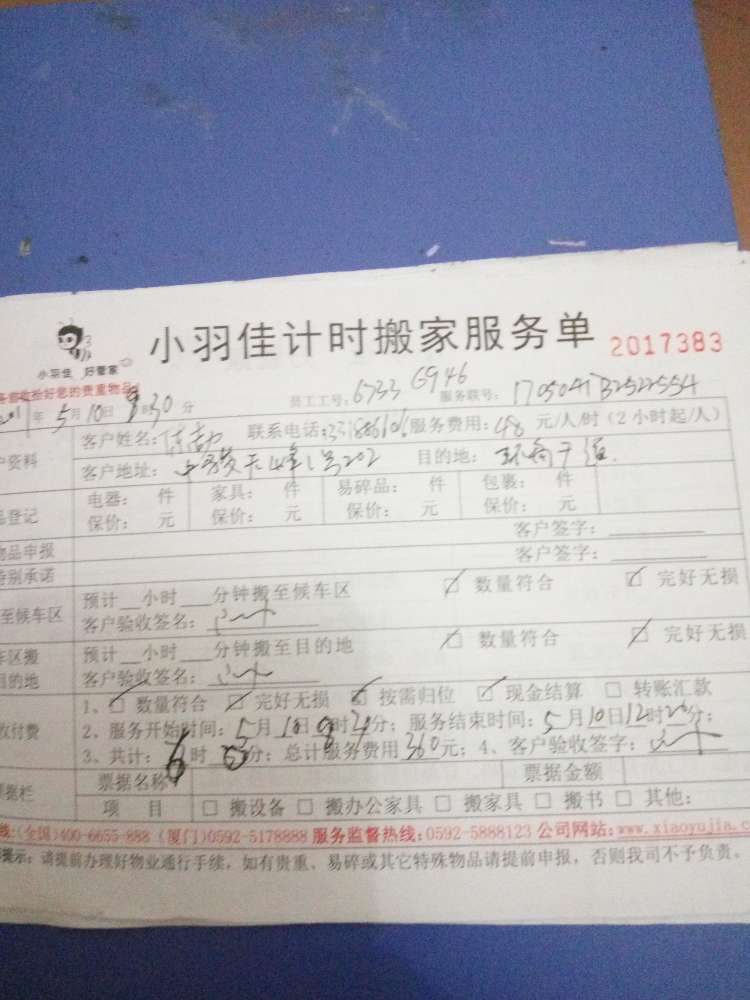 小羽佳 好管家
小羽佳计时搬家服务单 2017383
务前收捡好您的贵重物品
员工工号: 6733 G946 服务联号: 17050417B2522554
年 5月10日 8时30分
户资料 客户姓名: 联系电话: 服务费用: 48 元/人/时 (2小时起/人)
客户地址: 202 目的地:
品登记 电器: 件 家具: 件 易碎品: 件 包裹: 件
保价: 元 保价: 元 保价: 元 保价: 元
物品申报 客户签字:
特别承诺 客户签字:
至候车区 预计__小时___分钟搬至候车区 ☑ 数量符合 ☑ 完好无损
客户验收签名:
车区搬 预计__小时___分钟搬至目的地 ☑ 数量符合 ☑ 完好无损
目的地 客户验收签名:
收付费 1、☑ 数量符合 ☑ 完好无损 ☑ 按需归位 ☑ 现金结算 □ 转账汇款
2、服务开始时间: 5月10日8时30分; 服务结束时间: 5月10日12时20分;
3、共计: 时 分; 总计服务费用 360元; 4、客户验收签字:
票据栏 票据名称 票据金额
项 目 □ 搬设备 □ 搬办公家具 □ 搬家具 □ 搬书 □ 其他:
线:(全国)400-6655-888 (厦门)0592-5178888 服务监督热线:0592-5888123 公司网站: www.xiaoyujia.c
提示: 请提前办理好物业通行手续, 如有贵重、易碎或其它特殊物品请提前申报, 否则我司不予负责。